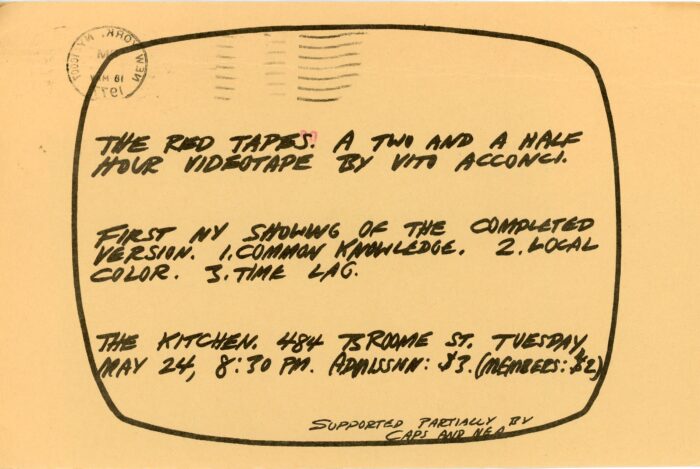 THE RED TAPES. A TWO AND A HALF
HOUR VIDEOTAPE BY VITO ACCONCI.
FIRST NY SHOWING OF THE COMPLETED
VERSION. 1. COMMON KNOWLEDGE. 2. LOCAL
COLOR. 3. TIME LAG.
THE KITCHEN. 484 BROOME ST. TUESDAY,
MAY 24, 8:30 PM. ADMISSION: $3. (MEMBERS: $2)
SUPPORTED PARTIALLY BY
CAPS AND NEA
NEW YORK, NY
PM
1977